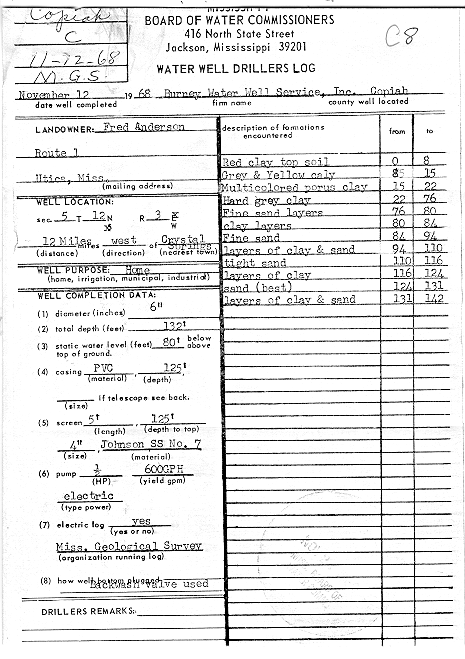 Copiah
C
11-12-68
M.G.S.
C8
MISSISSIPPI
BOARD OF WATER COMMISSIONERS
416 North State Street
Jackson, Mississippi 39201
WATER WELL DRILLERS LOG
November 12 1968 Burney Water Well Service, Inc. Copiah
date well completed firm name county well located
LANDOWNER: Fred Anderson
Route 1
Utica, Miss.
(mailing address)
WELL LOCATION:
sec. 5 T 12N R 3 E
W
12 Miles miles west of Crystal Springs
(distance) (direction) (nearest town)
WELL PURPOSE: Home
(home, irrigation, municipal, industrial)
WELL COMPLETION DATA:
(1) diameter (inches) 6"
(2) total depth (feet) 132'
(3) static water level (feet) 80' below above
top of ground.
(4) casing PVC , 125'
(material) (depth),
if telescope see back.
(size)
(5) screen 5' , 125'
(length) (depth to top)
4" , Johnson SS No. 7
(size) (material)
(6) pump 1/2 600GPH
(HP) (yield gpm)
electric
(type power)
(7) electric log yes
(yes or no)
Miss. Geological Survey
(organization running log)
(8) how well bottom plugged
Backwash Valve used
DRILLERS REMARKS:
description of formations encountered from to
Red clay top soil 0 8
Grey & Yellow caly 8 15
Multicolored porus clay 15 22
Hard grey clay 22 76
Fine sand layers 76 80
clay layers 80 84
Fine sand 84 94
layers of clay & sand 94 110
tight sand 110 116
layers of clay 116 124
sand (best) 124 131
layers of clay & sand 131 142